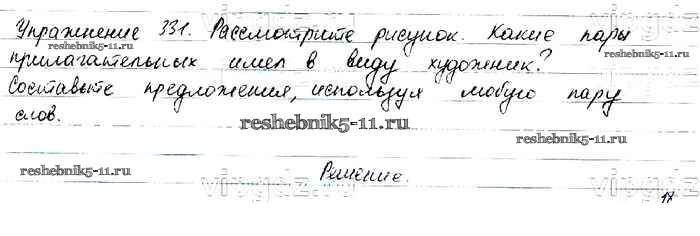 Упражнение 331. Рассмотрите рисунок. Какие пары
reshebnik5-11.ru reshebnik5-11.ru
прилагательных имел в виду художник?
Составьте предложения, используя любую пару
слов.
reshebnik5-11.ru
reshebnik5-11.ru reshebnik5-11.ru
Решение.